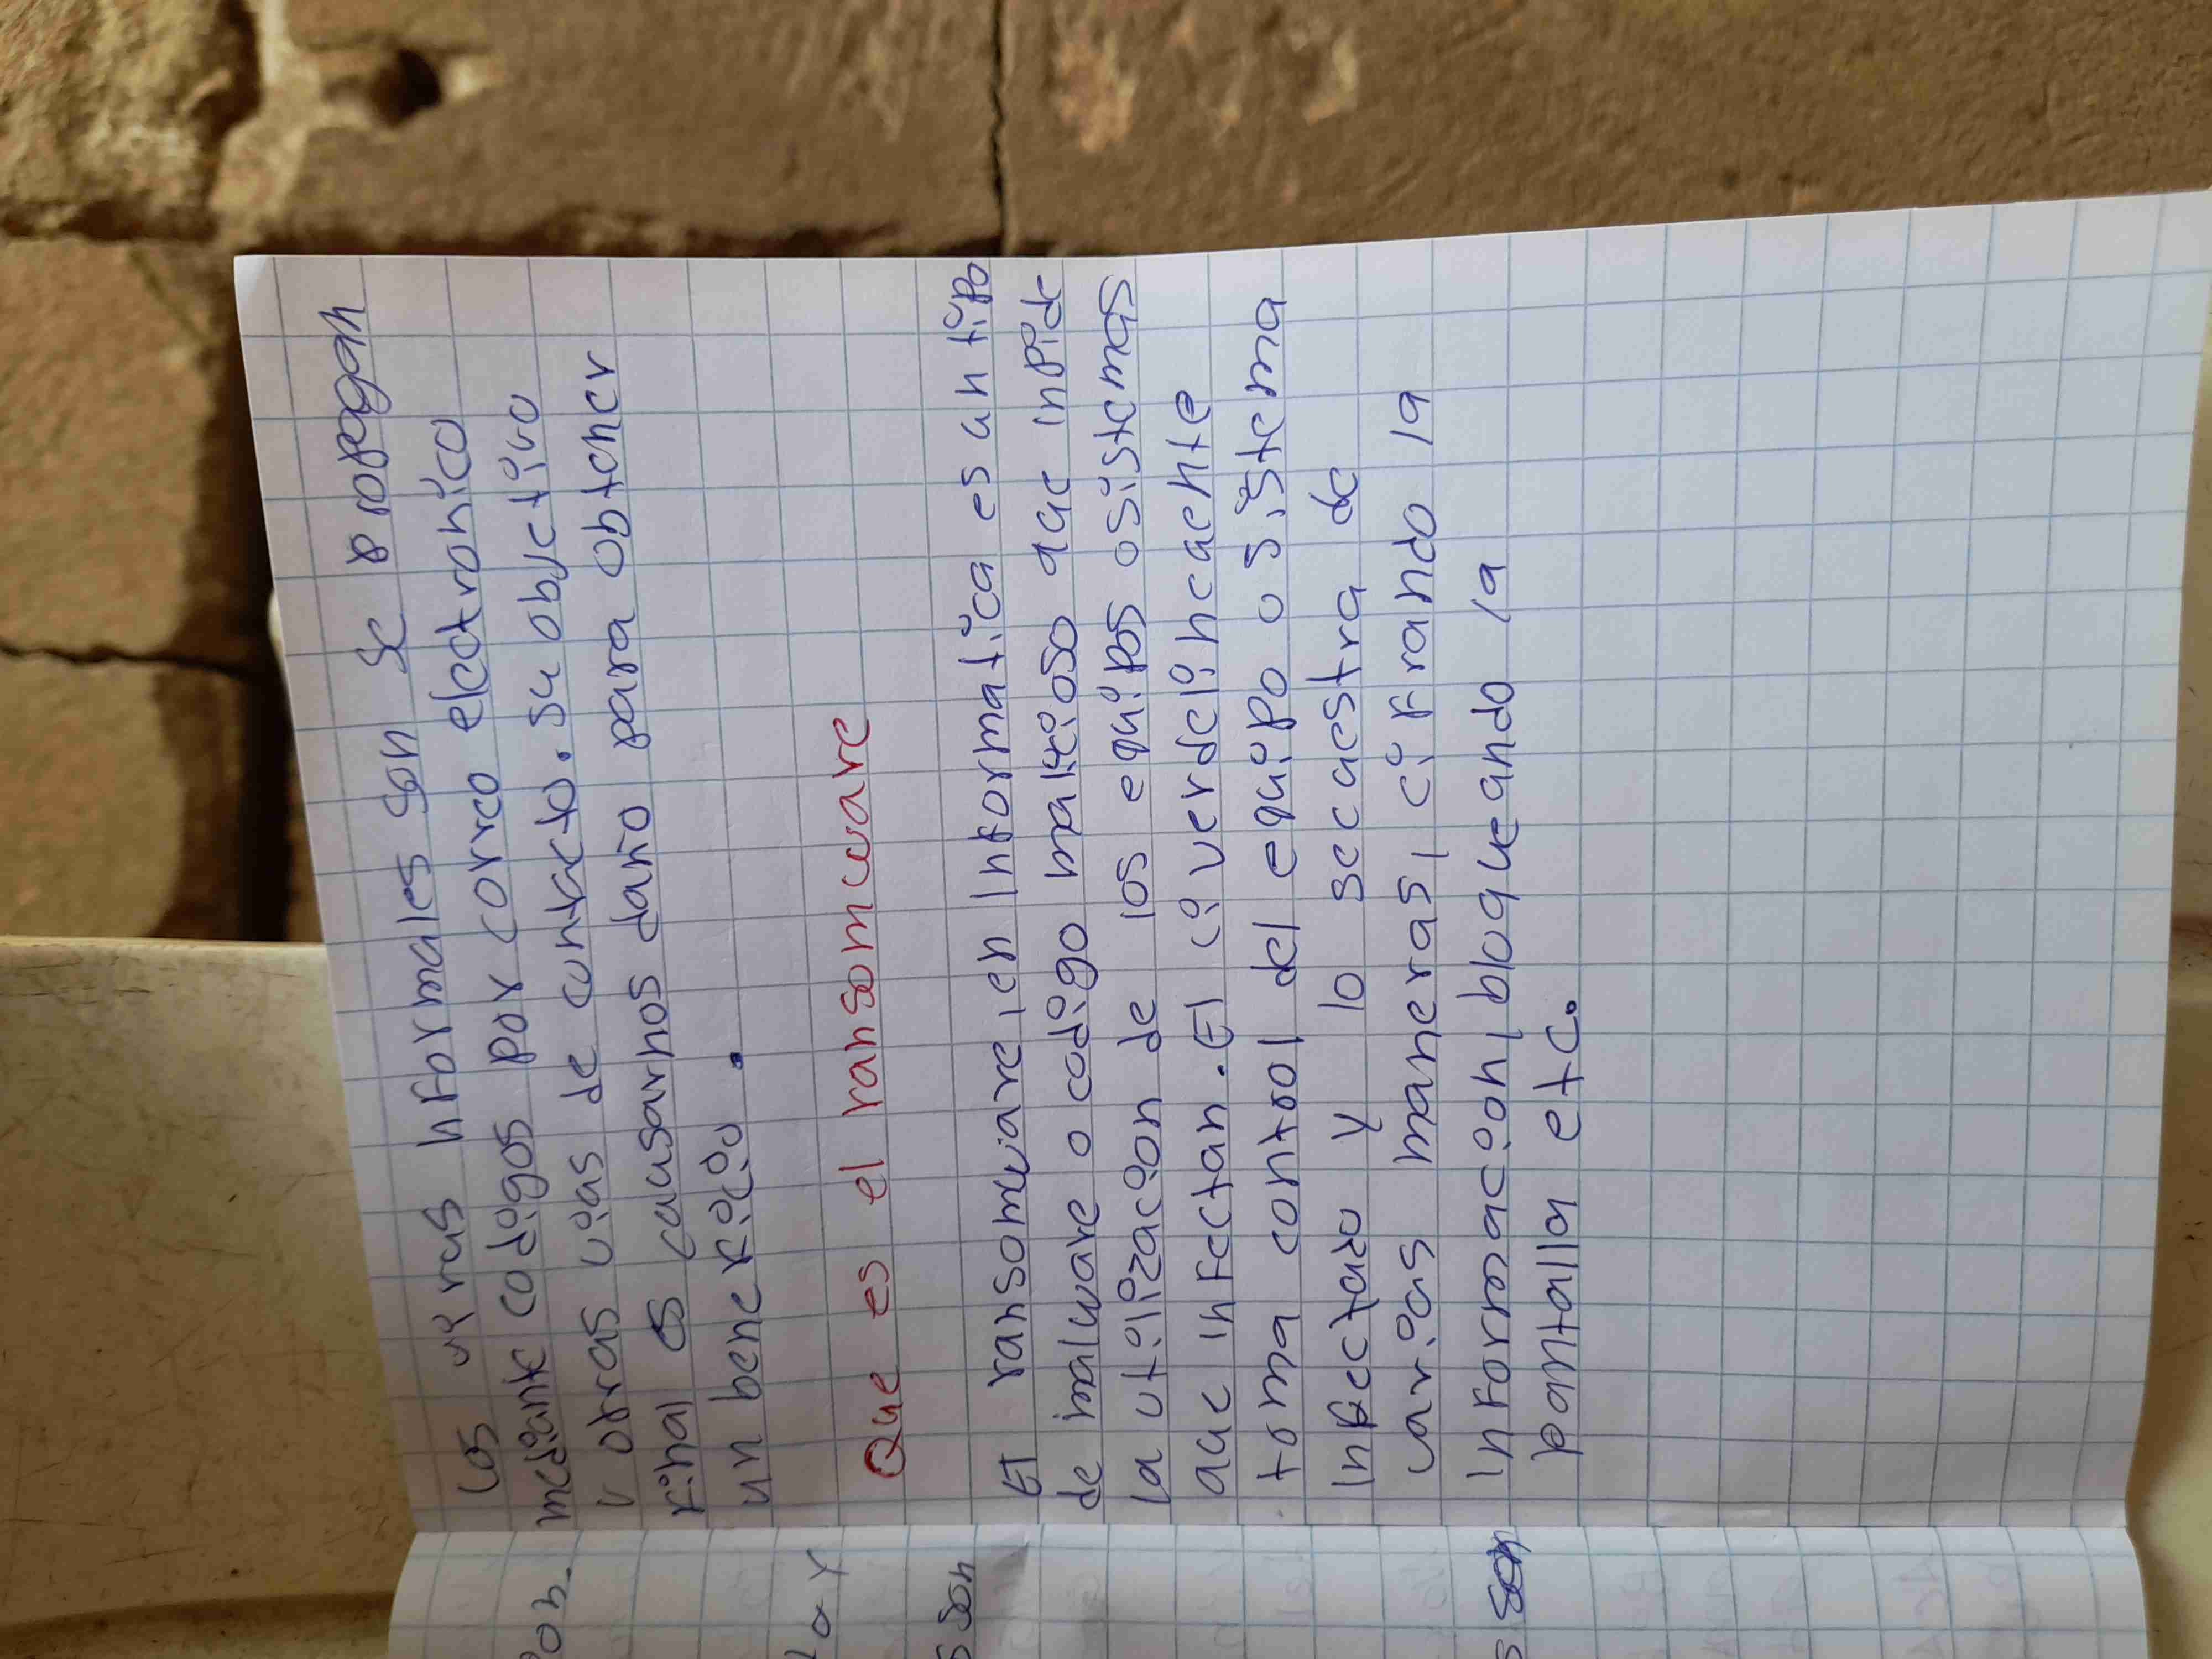 los virus nformales son se propagan
mediante codigos por correo electronico
y otras vias de contacto. su objetivo
final es causarnos daño para obtener
un beneficio.
Que es el ransomware
El ransomware, en Informatica es un tipo
de malware o codigo malicioso que inpide
la utilización de los equipos o sistemas
que infectan. El civerdelincuente
toma control del equipo o sistema
Infectado y lo secuestra de
varias maneras, cifrando la
Información, bloqueando la
pantalla etc.
son
son